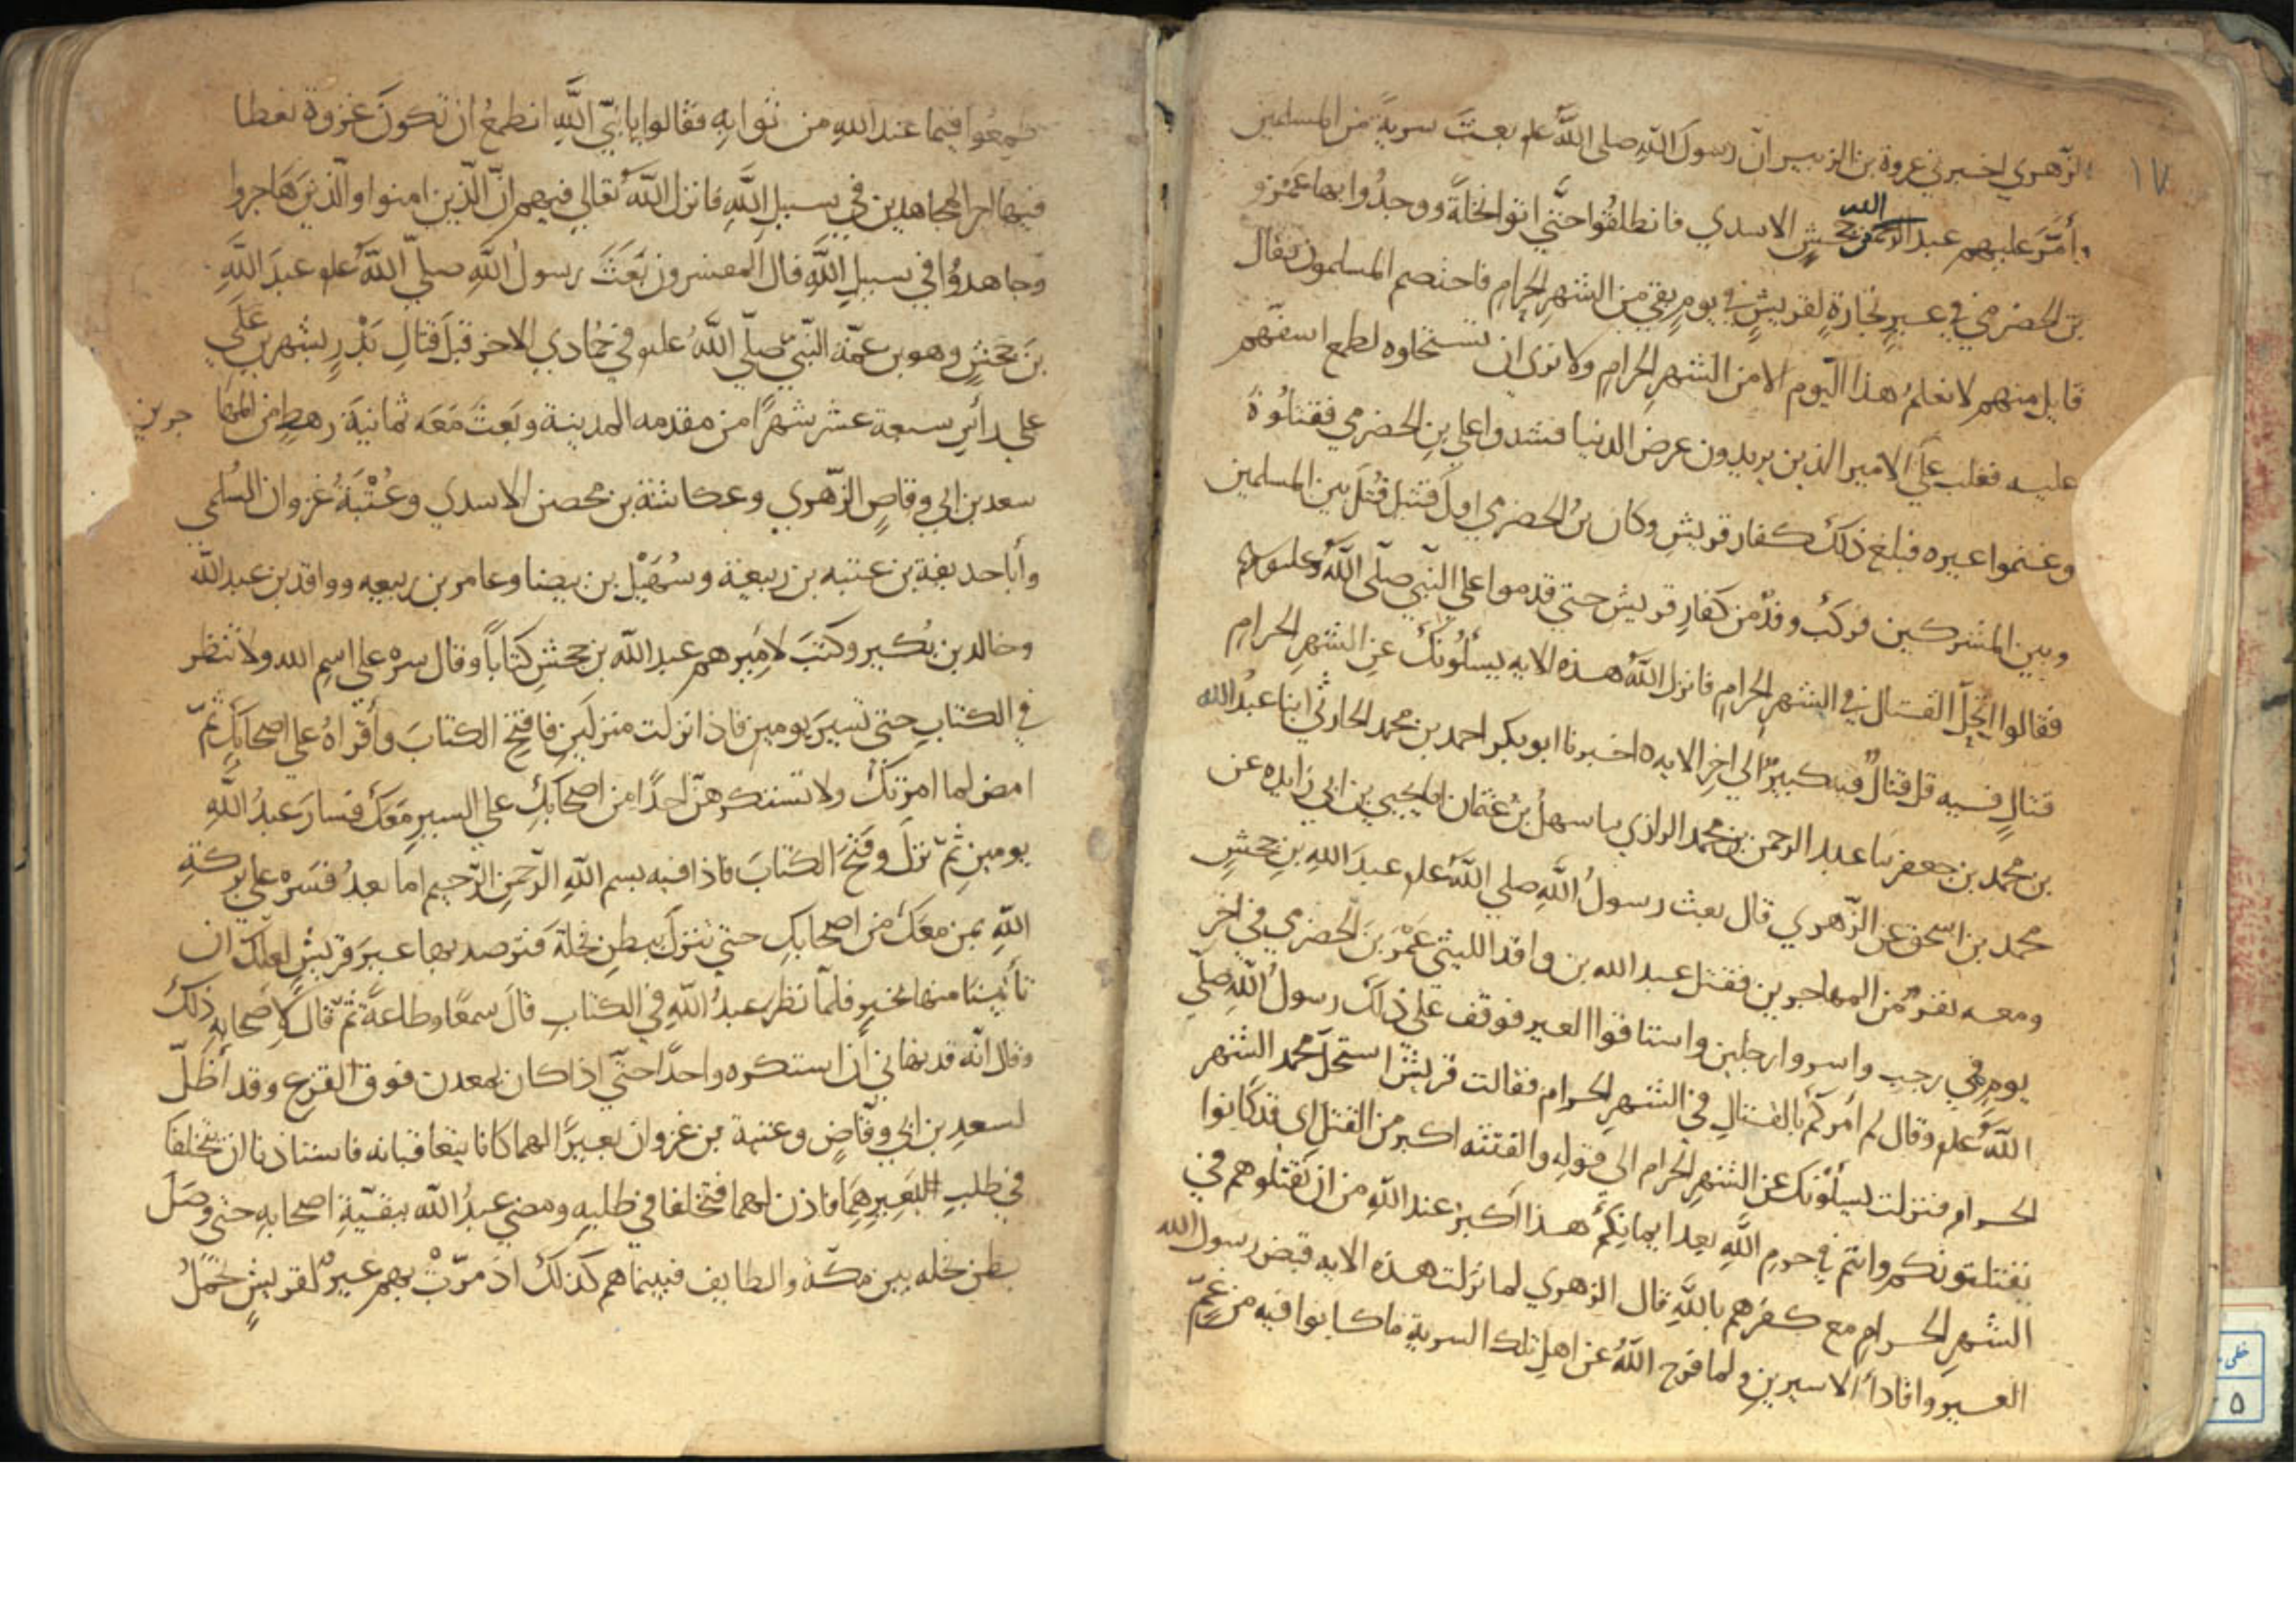 ١٧
الزهري اخبرني عروة بن الزبير ان رسول الله صلى الله علم بعث سرية من المسلمين
وأمّر عليهم عبد الرحمن بن جحش الاسدي فانطلقوا حتّي اتوا نخلة ووجدوا بها عمرو
الله
بن الحضرمي في عير تجارة لقريش في يوم بقي من الشهر الحرام فاختصم المسلمون فقال
قايل منهم لا نعلم هذا اليوم الا من الشهر الحرام ولا نرى ان تستحلوه لطمع اسفقهم
عليه فغلب علي الامير الذين يريدون عرض الدنيا فشدوا علي بن الحضرمي فقتلوه
وغنموا عيره فبلغ ذلك كفار قريش وكان بن الحضرمي اول قتيل قتل بين المسلمين
وبين المشركين فركب وفد من كفار قريش حتي قدموا علي النبي صلّى الله وعليه
فقالوا اتحلّ القتال في الشهر الحرام فانزل الله هذه الايه يسألونك عن الشهر الحرام
قتال فيه قل قتال فيه كبير الي اخر الايه ه اخبرنا ابو بكر احمد بن محمد الحارثي ابنا عبد الله
بن محمد بن جعفر ثنا عبد الرحمن بن محمد الرازي ثنا سهل بن عثمان انا يحيي بن ابي زايده عن
محمد بن اسحق عن الزهري قال بعث رسول الله صلي الله علم عبد الله بن جحش
ومعه نفر من المهاجرين فقتل عبد الله بن واقد الليثي عمرو بن الحضرمي في اخر
يوم في رجب واسروا رجلين واستاقوا العير فوقف علي ذلك رسول الله صلّي
الله علم وقال لم أمركم بالقتال في الشهر الحرام فقالت قريش استحل محمد الشهر
الحرام فنزلت يسألونك عن الشهر الحرام الى قوله والفتنه اكبر من القتل اى قد كانوا
يفتنونكم وانتم في حرم الله بعد ايمانكم هذا اكبر عند الله من ان تقتلوهم في
الشهر الحرام مع كفرهم بالله قال الزهري لما نزلت هذه الايه قبض رسول الله
العير وافادا الاسيرين ولما فرج الله عن اهل تلك السرية ما كانوا فيه من غمّ
طمعوا فيما عند الله من ثوابه فقالوا يا نبيّ الله انطمع ان تكون غزوة نعطا
فيها اجر المجاهدين في سبيل الله فانزل الله تعالي فيهم انّ الّذين امنوا والّذين هاجروا
وجاهدوا في سبيل الله قال المفسرون بعث رسول الله صلّي الله علم عبد الله
بن جحش وهو بن عمّة النّبيّ صلّي الله علم في جُمادي الاخر قبل قتال بدر بشهرين علي
علي رأس سبعة عشر شهرا من مقدمه المدينة وبعث معه ثمانية رهط من المها
جرين
سعد بن ابي وقاص الزّهري وعكاشة بن محصن الاسدي وعُتْبَةُ غزوان السُلمي
وأبا حذيفة بن عتبه بن ربيعة وسُهَيْل بن بيضا وعامر بن ربيعه وواقد بن عبد الله
وخالد بن بُكير وكتب لأميرهم عبد الله بن جحش كتاباً وقال سره علي اسم الله ولا تنظر
في الكتاب حتي تسير يومين فاذا نزلت منزلين فافتح الكتاب وأقراه علي اصحابك ثمّ
امض لما امرتك ولا تستكرهنّ احدًا من اصحابك علي السير معك فسار عبد الله
يومين ثمّ نزل وفتح الكتاب فاذا فيه بسم الله الرّحمن الرّحيم اما بعد فسره علي بركة
الله بمن معك من اصحابك حتي تنزل ببطن نخلة فترصد بها عير قريش لعلك ان
تأتينا منها بخير فلمّا نظر عبد الله في الكتاب قال سمعًا وطاعةً ثمّ قال لأصحابه ذلك
وقال انّه قد نهاني أن استكره واحدًا حتّي اذا كان بمعدن فوق القرع وقد أظلّ
لسعد بن ابي وقّاص وعتبة بن غزوان بعيرًا لهما كانا يتعاقبانه فاستاذنا ان يتخلفا
في طلب البعير هما فاذن لهما فتخلفا في طلبه ومضي عبد الله ببقيّة اصحابه حتي وصل
بطن نخله بين مكّة والطايف فبينما هم كذلك اذ مرّتْ بهم عير لقريش تحمل
خطى
٥